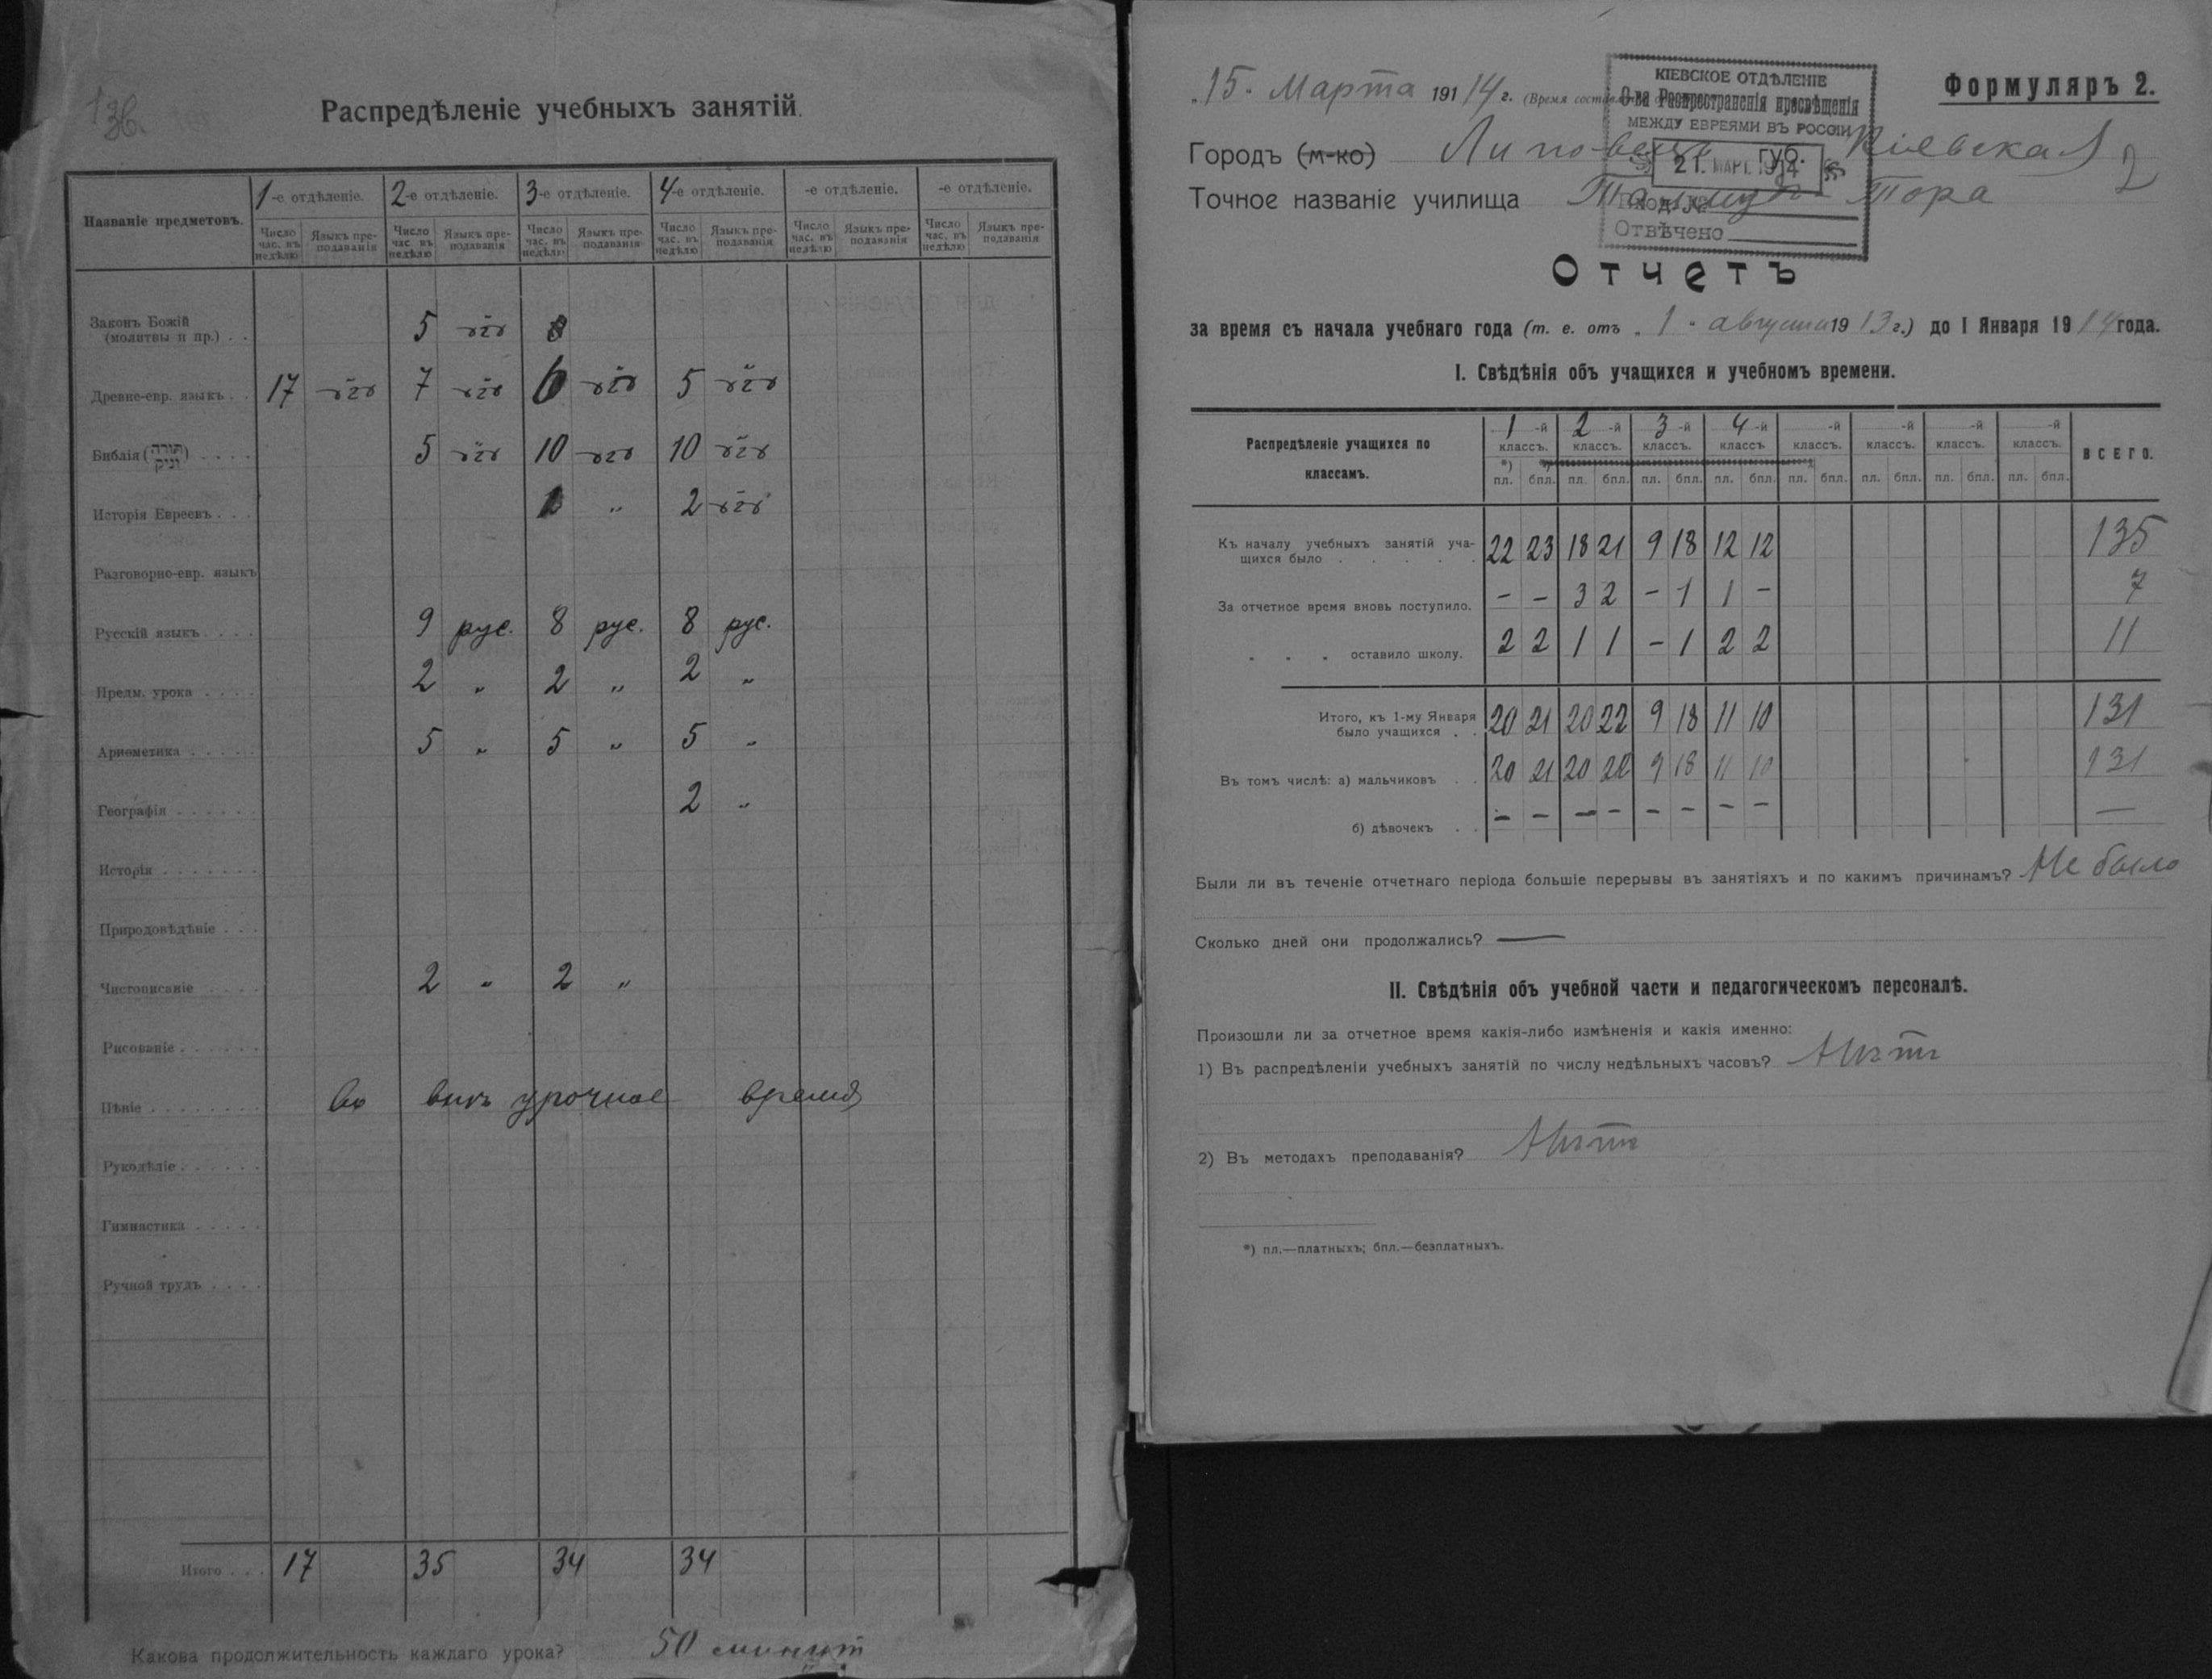 136.
Распредѣленіе учебныхъ занятій.
Названіе предметовъ. 1-е отдѣленіе. 2-е отдѣленіе. 3-е отдѣленіе. 4-е отдѣленіе. -е отдѣленіе. -е отдѣленіе.
Число час. въ недѣлю Языкъ преподаванія Число час. въ недѣлю Языкъ преподаванія Число час. въ недѣлю Языкъ преподаванія Число час. въ недѣлю Языкъ преподаванія Число час. въ недѣлю Языкъ преподаванія Число час. въ недѣлю Языкъ преподаванія
Законъ Божій
(молитвы и пр.) . . 5
Древне-евр. языкъ . . 17 7 6 5
Библія (תורה נ״ך) . . . . 5 10 10
Исторія Евреевъ . . . 1 „ 2
Разговорно-евр. языкъ
Русскій языкъ . . . . 9 рус. 8 рус. 8 рус.
Предм. урока . . . . 2 „ 2 „ 2 „
Ариѳметика . . . . . 5 „ 5 „ 5 „
Географія . . . . . . 2 „
Исторія . . . . . . .
Природовѣдѣніе . . .
Чистописаніе . . . . 2 „ 2 „
Рисованіе . . . . . .
Пѣніе . . . . . . . . во внѣ урочное время
Рукодѣліе . . . . . .
Гимнастика . . . . .
Ручной трудъ . . . .
Итого . . . 17 35 34 34
Какова продолжительность каждаго урока? 50 минут
„15„ Марта 1914 г. (Время составленія
Формуляръ 2.
КІЕВСКОЕ ОТДѢЛЕНІЕ
О-ва Распространенія просвѣщенія
МЕЖДУ ЕВРЕЯМИ ВЪ РОССІИ
21. МАРТ. 1914
Вход. №
Отвѣчено
Городъ (м-ко) Липовецъ губ. Кіевская
2
Точное названіе училища Талмудъ-Тора
Отчетъ
за время съ начала учебнаго года (т. е. отъ „1„ августа 1913 г.) до 1 Января 1914 года.
I. Свѣдѣнія объ учащихся и учебномъ времени.
Распредѣленіе учащихся по классамъ. 1-й классъ. 2-й классъ. 3-й классъ. 4-й классъ. -й классъ. -й классъ. -й классъ. -й классъ. ВСЕГО.
*) пл. бпл. пл. бпл. пл. бпл. пл. бпл. пл. бпл. пл. бпл. пл. бпл. пл. бпл.
Къ началу учебныхъ занятій уча-
щихся было . . . . . 22 23 18 21 9 18 12 12 135
За отчетное время вновь поступило. – – 3 2 – 1 1 – 7
„ „ „ оставило школу. 2 2 1 1 – 1 2 2 11
Итого, къ 1-му Января
было учащихся . . 20 21 20 22 9 18 11 10 131
Въ томъ числѣ: а) мальчиковъ . . 20 21 20 22 9 18 11 10 131
б) дѣвочекъ . . – – – – – – – – —
Были ли въ теченіе отчетнаго періода большіе перерывы въ занятіяхъ и по какимъ причинамъ? Не было
Сколько дней они продолжались? —
II. Свѣдѣнія объ учебной части и педагогическомъ персоналѣ.
Произошли ли за отчетное время какія-либо измѣненія и какія именно:
1) Въ распредѣленіи учебныхъ занятій по числу недѣльныхъ часовъ? Нѣтъ
2) Въ методахъ преподаванія? Нѣтъ
*) пл.—платныхъ; бпл.—безплатныхъ.